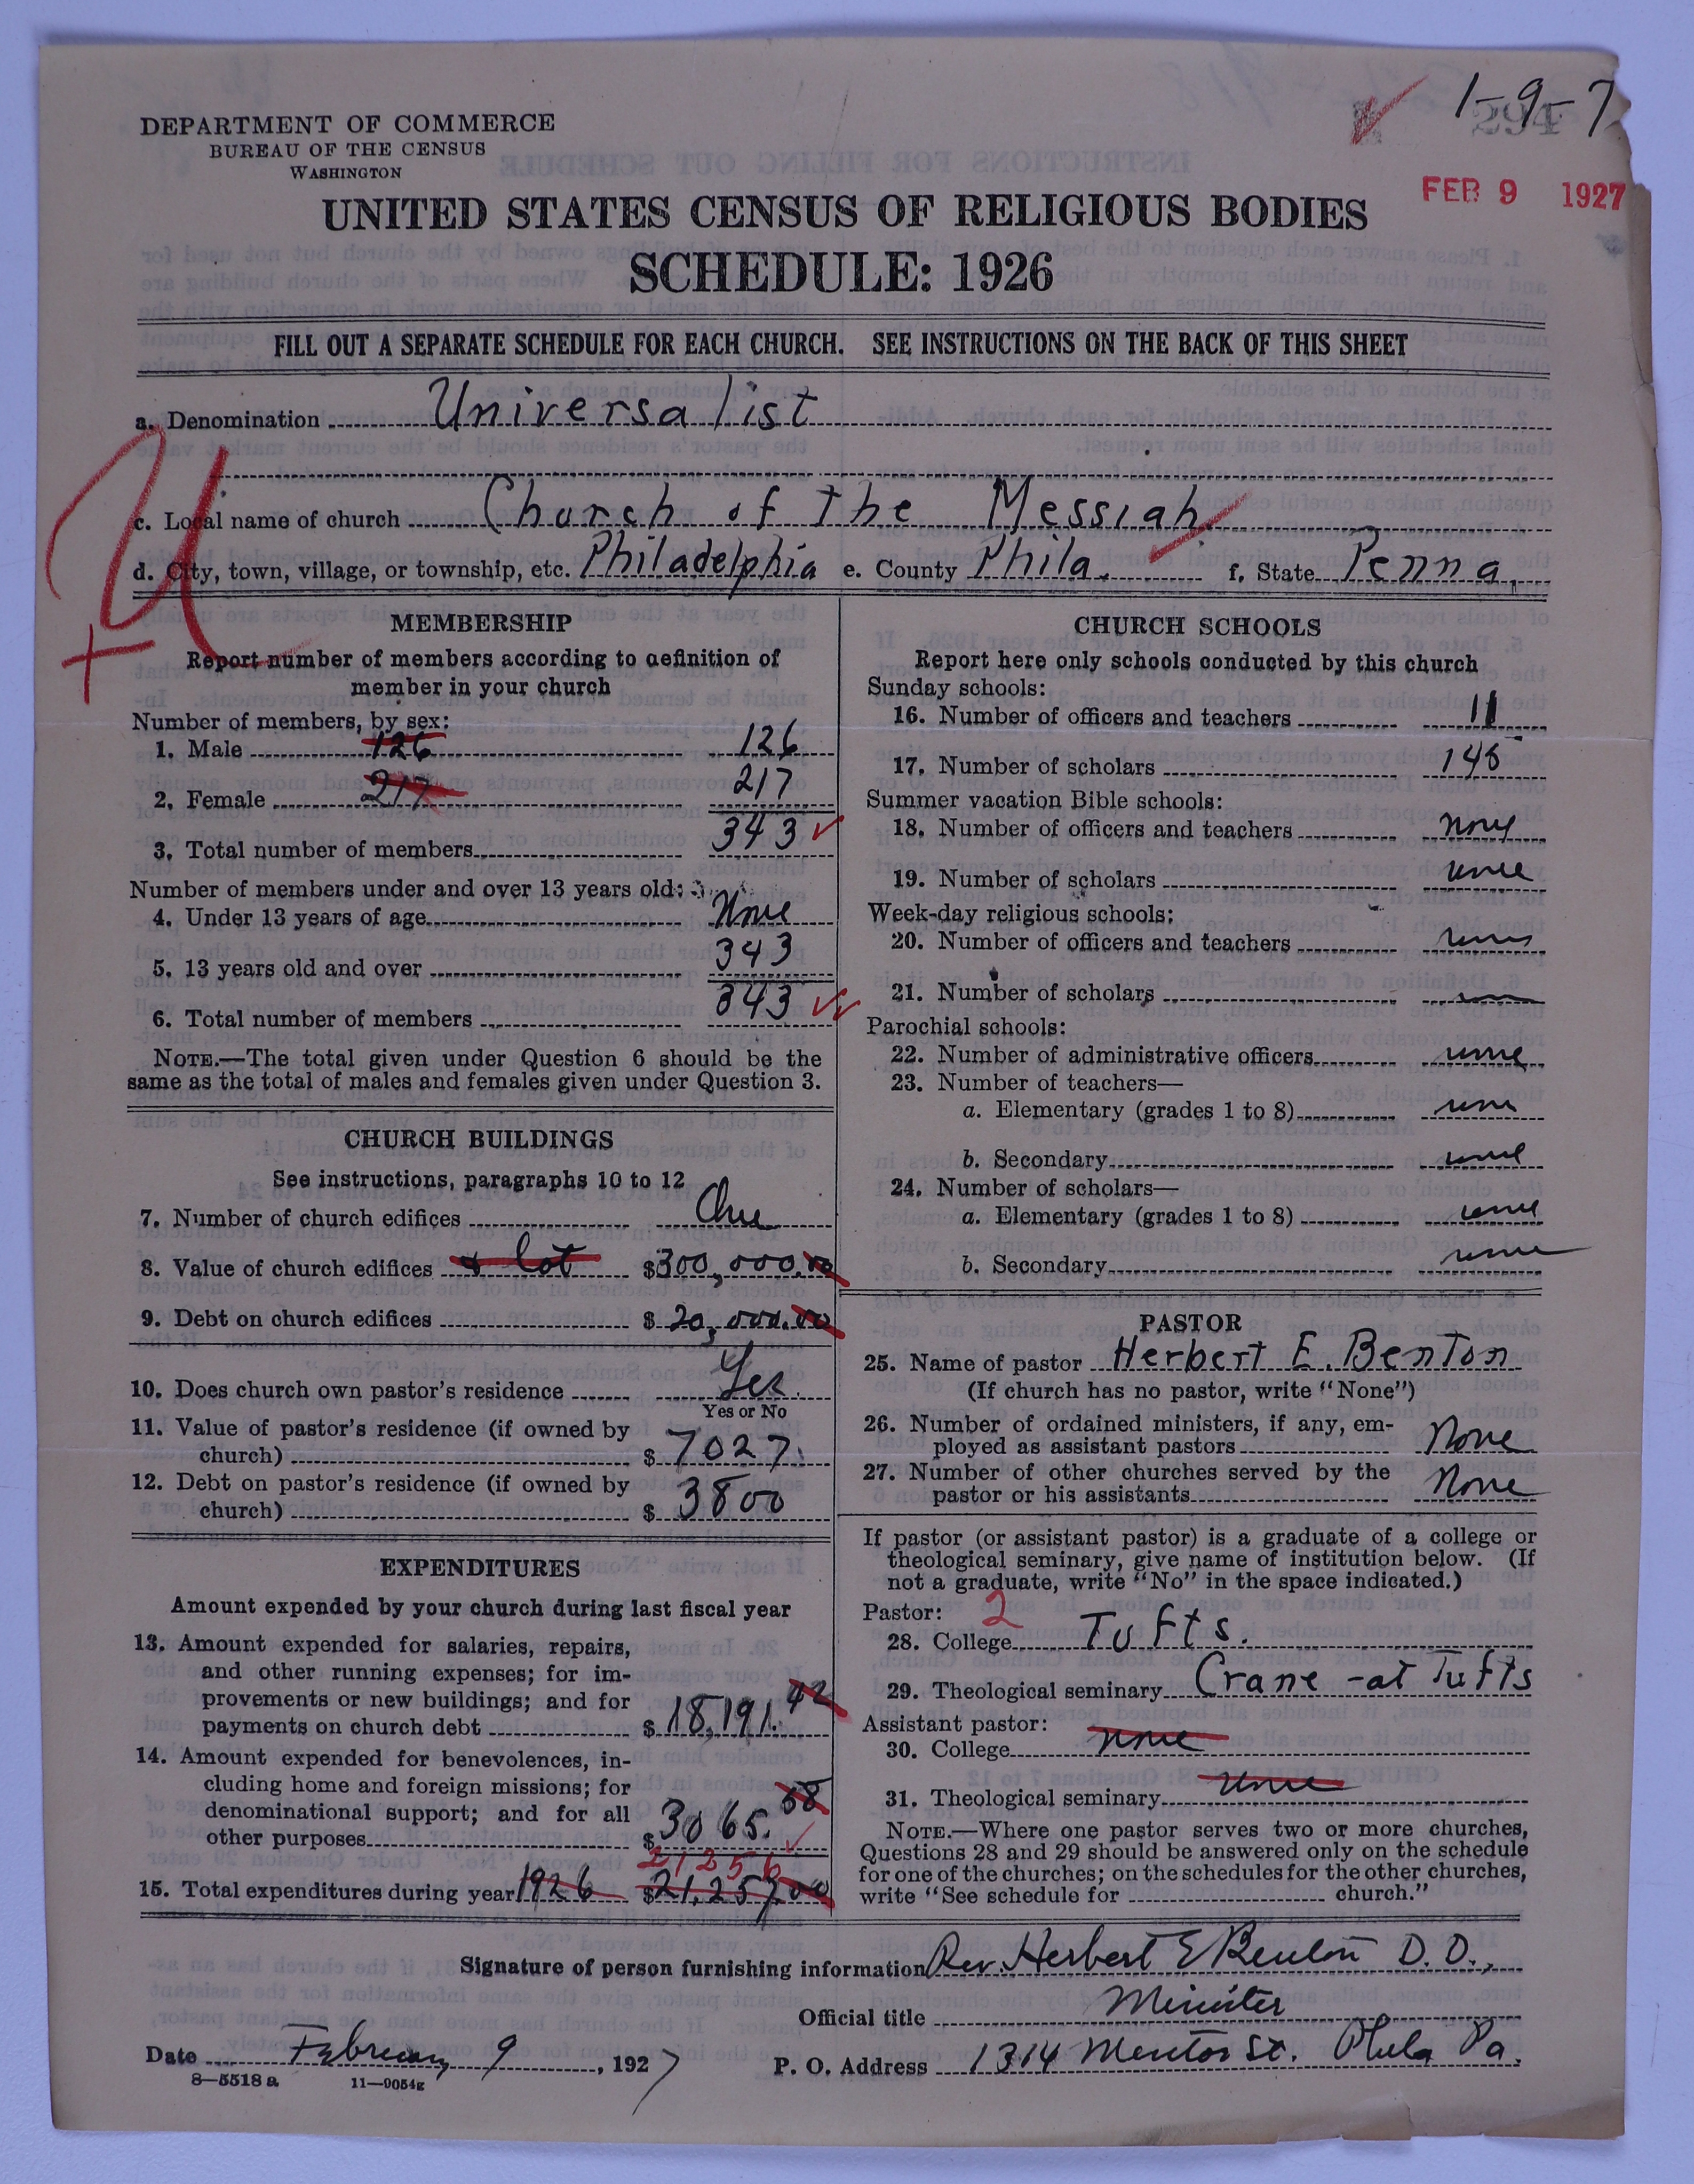 1-9-7
294
DEPARTMENT OF COMMERCE
BUREAU OF THE CENSUS
WASHINGTON
FEB 9 1927
UNITED STATES CENSUS OF RELIGIOUS BODIES
SCHEDULE: 1926
FILL OUT A SEPARATE SCHEDULE FOR EACH CHURCH. SEE INSTRUCTIONS ON THE BACK OF THIS SHEET
a. Denomination Universalist
U
c. Local name of church Church of the Messiah
d. City, town, village, or township, etc. Philadelphia e. County Phila. f. State Penna.
MEMBERSHIP
Report number of members according to definition of
member in your church
Number of members, by sex:
1. Male 126 126
2. Female 217 217
3. Total number of members 343
Number of members under and over 13 years old:
4. Under 13 years of age None
5. 13 years old and over 343
6. Total number of members 343
NOTE.—The total given under Question 6 should be the
same as the total of males and females given under Question 3.
CHURCH BUILDINGS
See instructions, paragraphs 10 to 12
7. Number of church edifices One
8. Value of church edifices & lot $300,000.00
9. Debt on church edifices $20,000.00
10. Does church own pastor's residence Yes.
Yes or No
11. Value of pastor's residence (if owned by
church) $7027.
12. Debt on pastor's residence (if owned by
church) $3800
EXPENDITURES
Amount expended by your church during last fiscal year
13. Amount expended for salaries, repairs,
and other running expenses; for im-
provements or new buildings; and for
payments on church debt $18,191.42
14. Amount expended for benevolences, in-
cluding home and foreign missions; for
denominational support; and for all
other purposes $3065.58
21256
15. Total expenditures during year 1926 $21,257.00
CHURCH SCHOOLS
Report here only schools conducted by this church
Sunday schools:
16. Number of officers and teachers 11
17. Number of scholars 145
Summer vacation Bible schools:
18. Number of officers and teachers none
19. Number of scholars none
Week-day religious schools:
20. Number of officers and teachers none
21. Number of scholars
Parochial schools:
22. Number of administrative officers none
23. Number of teachers—
a. Elementary (grades 1 to 8) none
b. Secondary none
24. Number of scholars—
a. Elementary (grades 1 to 8) none
b. Secondary none
PASTOR
25. Name of pastor Herbert E. Benton
(If church has no pastor, write "None")
26. Number of ordained ministers, if any, em-
ployed as assistant pastors None
27. Number of other churches served by the
pastor or his assistants None
If pastor (or assistant pastor) is a graduate of a college or
theological seminary, give name of institution below. (If
not a graduate, write "No" in the space indicated.)
Pastor: 2
28. College Tufts.
29. Theological seminary Crane - at Tufts
Assistant pastor:
30. College none
31. Theological seminary none
NOTE.—Where one pastor serves two or more churches,
Questions 28 and 29 should be answered only on the schedule
for one of the churches; on the schedules for the other churches,
write "See schedule for church."
Signature of person furnishing information Rev. Herbert E Benton D.D.,
Official title Minister
Date February 9, 1927 P. O. Address 1314 Mentor St. Phila Pa.
8—5518 a 11—9054g